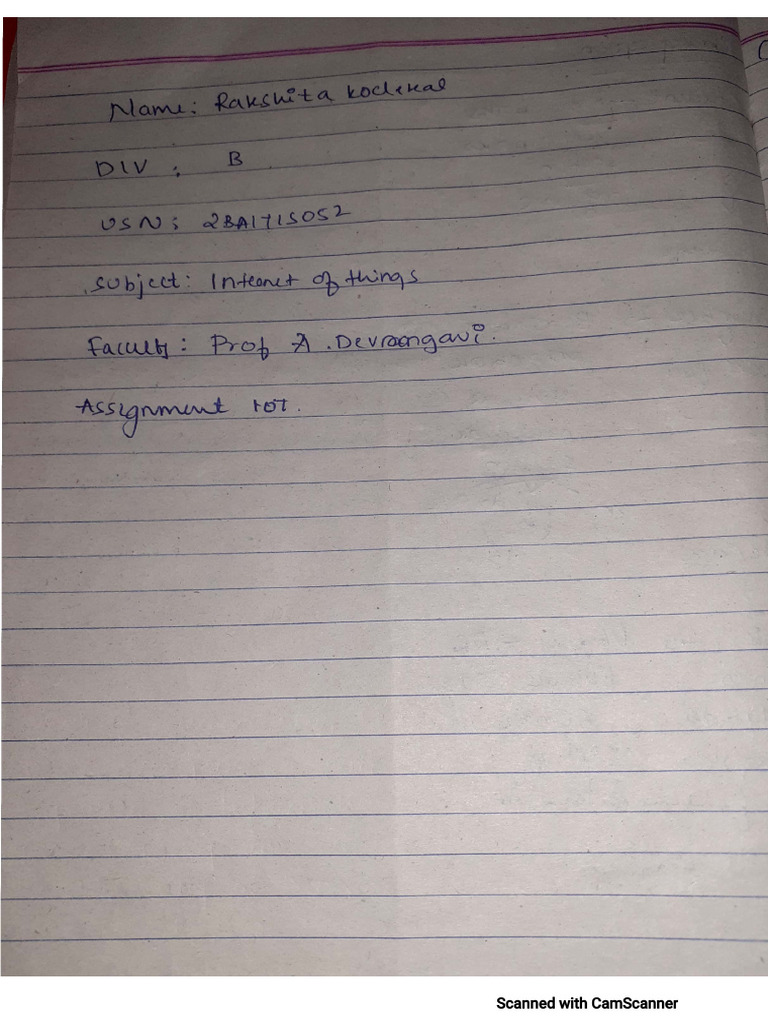 Name: Rakshita Kodekal
DIV : B
USN: 2BA17IS052
Subject: Internet of things
Faculty: Prof A. Devraangavi.
Assignment IOT.
Scanned with CamScanner